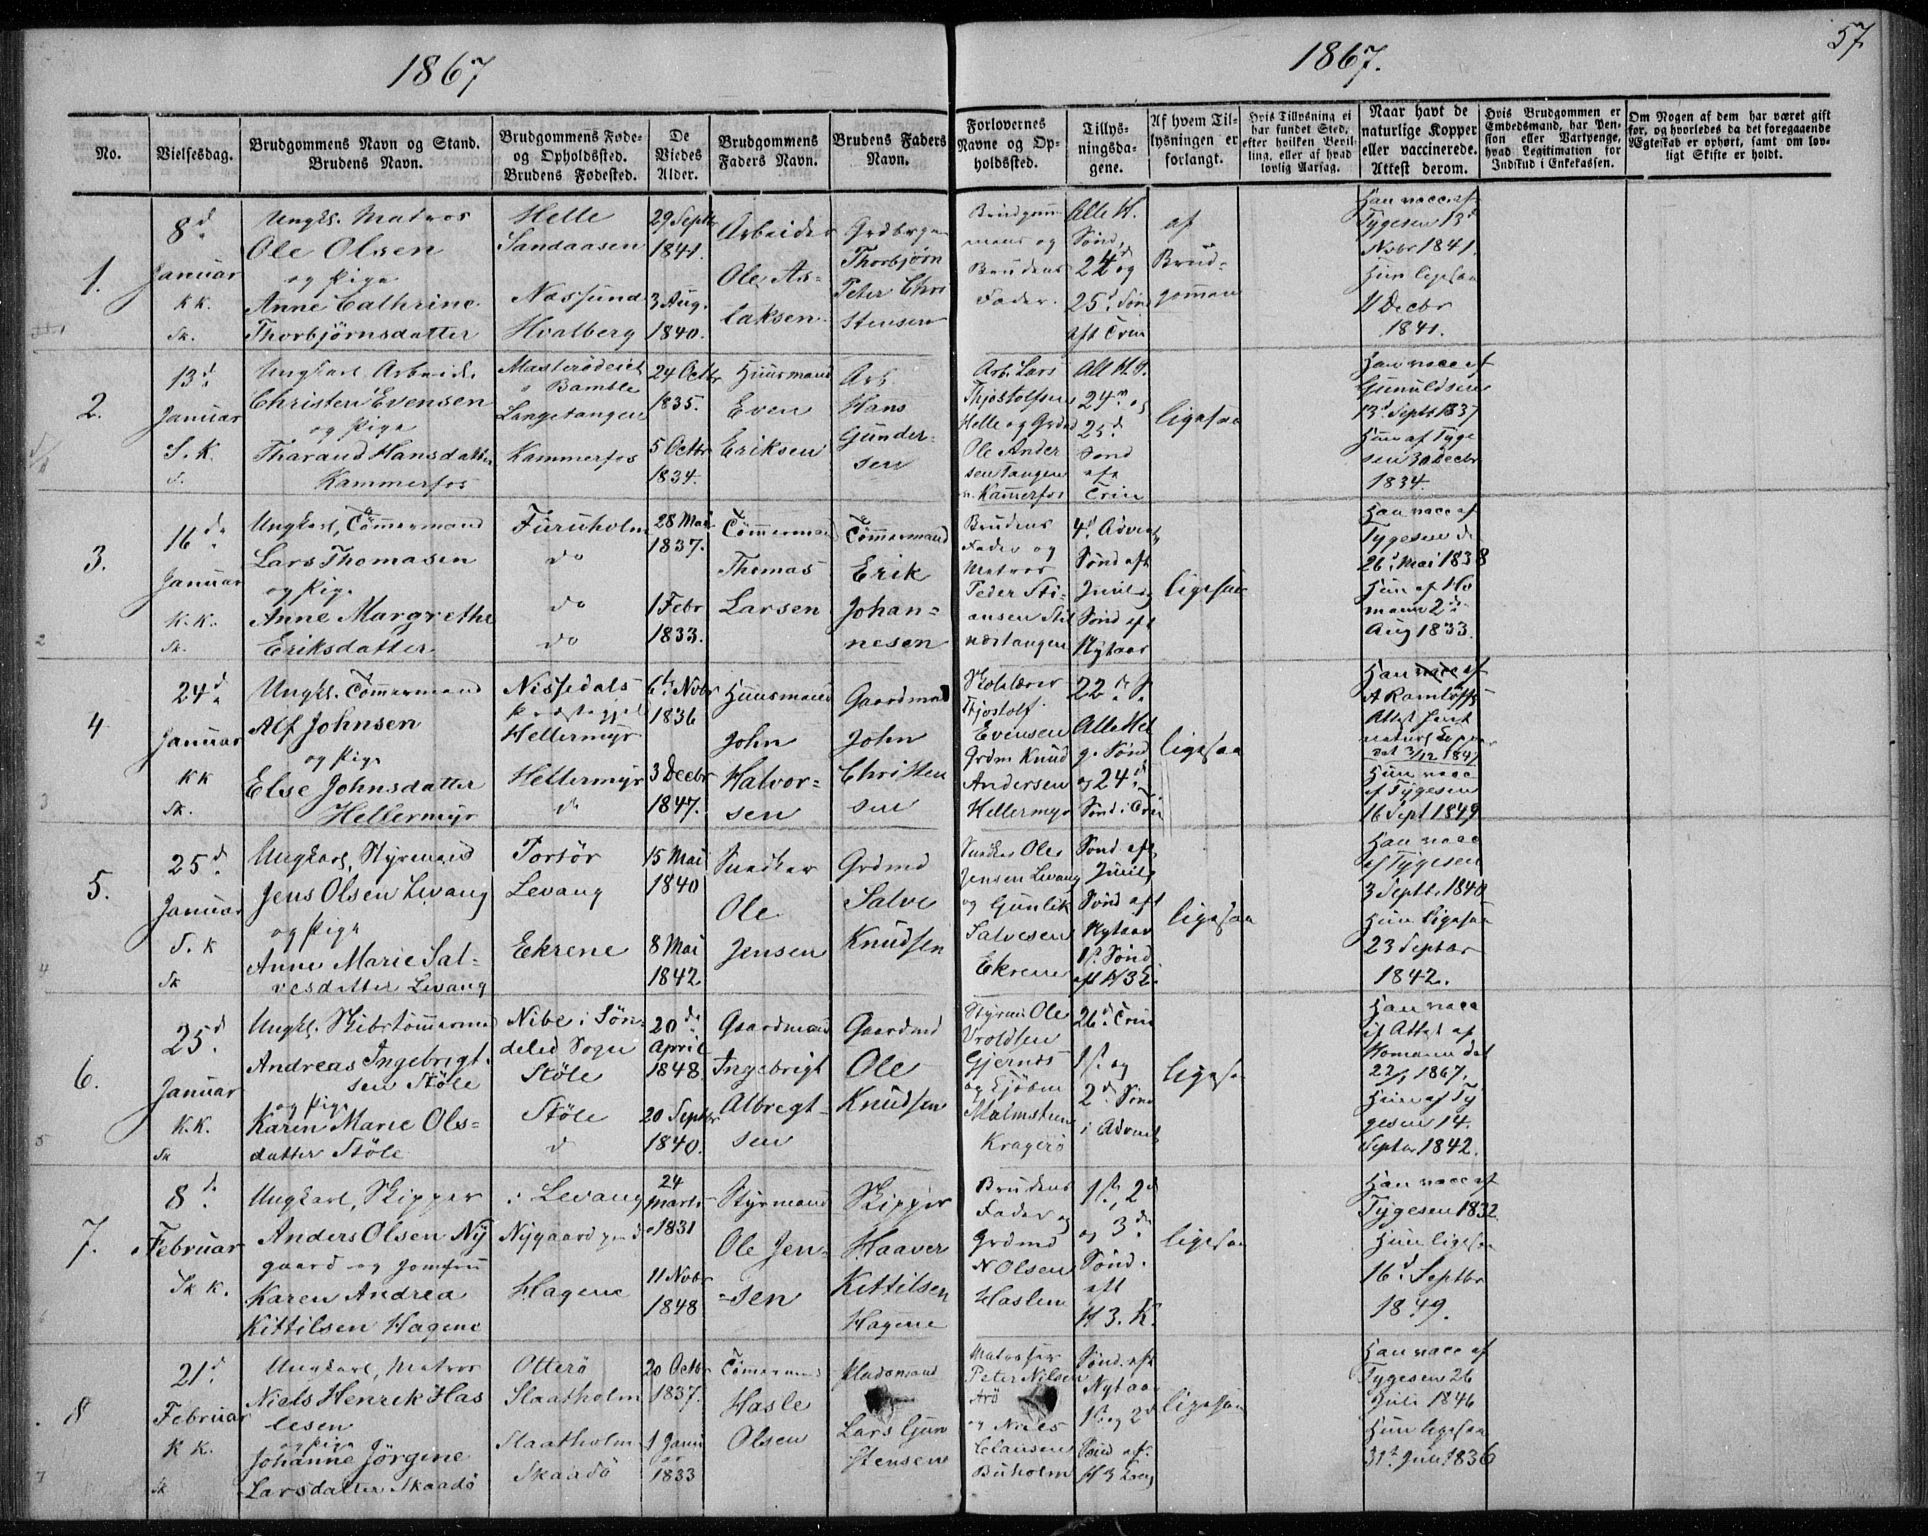 1867
1867.
57
No.
Vielsesdag.
Brudgommens Navn og Stand.
Brudens Navn.
Brudgommens Føde-
og Opholdssted.
Brudens Fødested.
De
Viedes
Alder.
Brudgommens
Faders Navn.
Brudens Faders
Navn.
Forlovernes
Navne og Op-
holdssted.
Tillys-
ningsda-
gene.
Af hvem Til-
lysningen er
forlangt.
Hvis Tillysning ei
har fundet Sted,
efter hvilken Bevil-
ling, eller af hvad
lovlig Aarsag.
Naar havt de
naturlige Kopper
eller vaccinerede.
Attest derom.
Hvis Brudgommen er
Embedsmand, har Pen-
sion eller Vartpenge,
hvad Legitimation for
Indskud i Enkekassen.
Om Nogen af dem har været gift
før, og hvorledes da det foregaaende
Ægteskab er ophørt, samt om lov-
ligt Skifte er holdt.
1.
8d
Januar
KK.
Sk.
Ungk. Matros
Ole Olsen
og Pige
Anne Cathrine
Thorbjörnsdatter
Helle
Sandaasen
Næssund
Hvalberg
29 Septbr
1841.
3 Aug.
1840.
Arbeider
Ole As-
laksen
Thorbjørn
Peter Chri
stensen
Brudgom-
mens og
Brudens
Fader.
Alle H.
Sönd,
24d og
25d Sönd
aft Trin
af
Brud-
gommen
Han vacc af
Tygesen 13d
Novbr 1841.
Hun ligesaa
11 Decbr
1841.
2.
13d
Januar
S. K.
Ungkarl Arbeid.
Christen Evensen
og Pige
Tharand Hansdatter
Kammerfos
Bamble
Langetangen
Kammerfos
24 Octbr
1835.
5 Octbr
1834.
Huusmand
Even
Eriksen
Arb.
Hans
Gunder-
sen
Arb. Lars
Thjostolfsen
Helle og
Ole Ander
sen Tangen
v. Kammerfos
24de og
25d
Sönd
aft
Trin
ligesaa
Han vacc af
Gunuldsen
13d Septb 1837
Hun af Tyge
sen 30 Decbr
1834.
3.
16de
Januar
K.K.
Sk.
Ungkarl, Tömmermand
Lars Thomasen
og Pige
Anne Margrethe
Eriksdatter
Furuholm
do
do
do
28 Mai
1837.
1 Febr
1833.
Tömmermand
Thomas
Larsen
Tömmermand
Erik
Johan-
nesen
Brudens
Fader og
Matros
Peder Sti-
ansen Stil
næstangen
4d Advent
Sönd aft
Juul og
Sönd aft
Nytaar
ligesaa
Han vacc af
Tygesen d
26d Mai 1838
Hun af Ho
mann 2d
Aug 1833.
4
24d
Januar
KK
Sk.
Ungk. Tömmermand
Alf Johnsen
og Pige
Else Johnsdatter
Hellermyr
Nissedals
Hellermyr
Hellermyr
do
6te Novbr
1836
3 Decbr
1847.
Huusmand
John
Halvor-
sen
Gaardmand
John
Christen
sen
Skolelærer
Thjostolf
Evensen
Grdm Knud
Andersen
Hellermyr
22de S.
Alle Hel
g. Sönd
og 24d
Sönd i Trin
ligesaa
Han vacc af
A Ramtofts
Attest
naturl
dat 3/12 1847
Hun vacc
af Tygesen
16 Sept 1849
5.
25d
Januar
S. K
Sk
Ungkarl, Styrmand
Jens Olsen Levang
og Pige
Anne Marie Sal-
vesdatter Levang
Portör
Levang
Ekrene
15 Mai
1840
8 Mai
1842
Snedker
Ole
Jensen
Grdmd
Salve
Knudsen
Snedker Ole
Jensen Levang
og Gunlik
Salvesen
Ekrene
Sönd aft
Juul,
Sönd aft
Nytaar
1st. Sönd
aft H 3 K
ligesaa
Han vacc
af Tygesen
3 Septb. 1840
Hun ligesaa
23 Septbr
1842.
6.
25d
Januar
K.K.
Sk
Ungk. Skibstömmermand
Andreas Ingebrigt-
sen Stöle
og Pige
Karen Marie Ols-
datter Stöle
Nibe i Sön-
deled Sogn
Stöle
Stöle
20de
April
1848
20 Septbr
1840.
Gaardmand
Ingebrigt
Albregt-
sen
Gaardmd
Ole
Knudsen
Styrm Ole
Vroldsen
Gjernes
Malmsteen
Kragerö
26d Trin
1st og
2d Sönd
i Advent
ligesaa
Han vacc
if Attest af
Homann dat
22/1 1867.
Hun af Ty
gesen 14.
Septbr 1842.
7.
8de
Februar
Sk K.
Ungkarl, Skipper
Anders Olsen Ny
gaard og Jomfru
Karen Andrea
Kittilsen Hagene
i Levang
Nygaard
Hagene
24
Marts
1831
11 Novbr
1848
Styrmand
Ole Jen-
sen
Skipper
Haaver
Kittilsen
Hagene
Brudens
Fader og
Grdmd
N Olsen
Haslum
1st, 2d
og 3de
Sönd.
aft
H 3. K.
ligesaa
Han vacc af
Tygesen 1832
Hun ligesaa
16d Septbr
1849.
8
21d
Februar
K K.
Sk
Ungkarl, Matros
Niels Henrik Has
lesen
og Pige
Johanne Jörgine
Larsdatter Skaadö
Otterö
Slaatholm
Slaatholm
Skaadö
20 Octbr
1837.
1 Janu
ar
1833
Tömmermand
Hasle
Olsen
Pladsmand
Lars Chri
stensen
Matroser
Peter Nilsen
Arö
og Niels
Clausen
Buholm
Sönd. aft
Nytaar
1st og 2d
Sönd aft
H 3 Kong
ligesaa
Han vacc af
Tygesen 26
Juli 1846
Hun ligesaa
31te Juli 1836